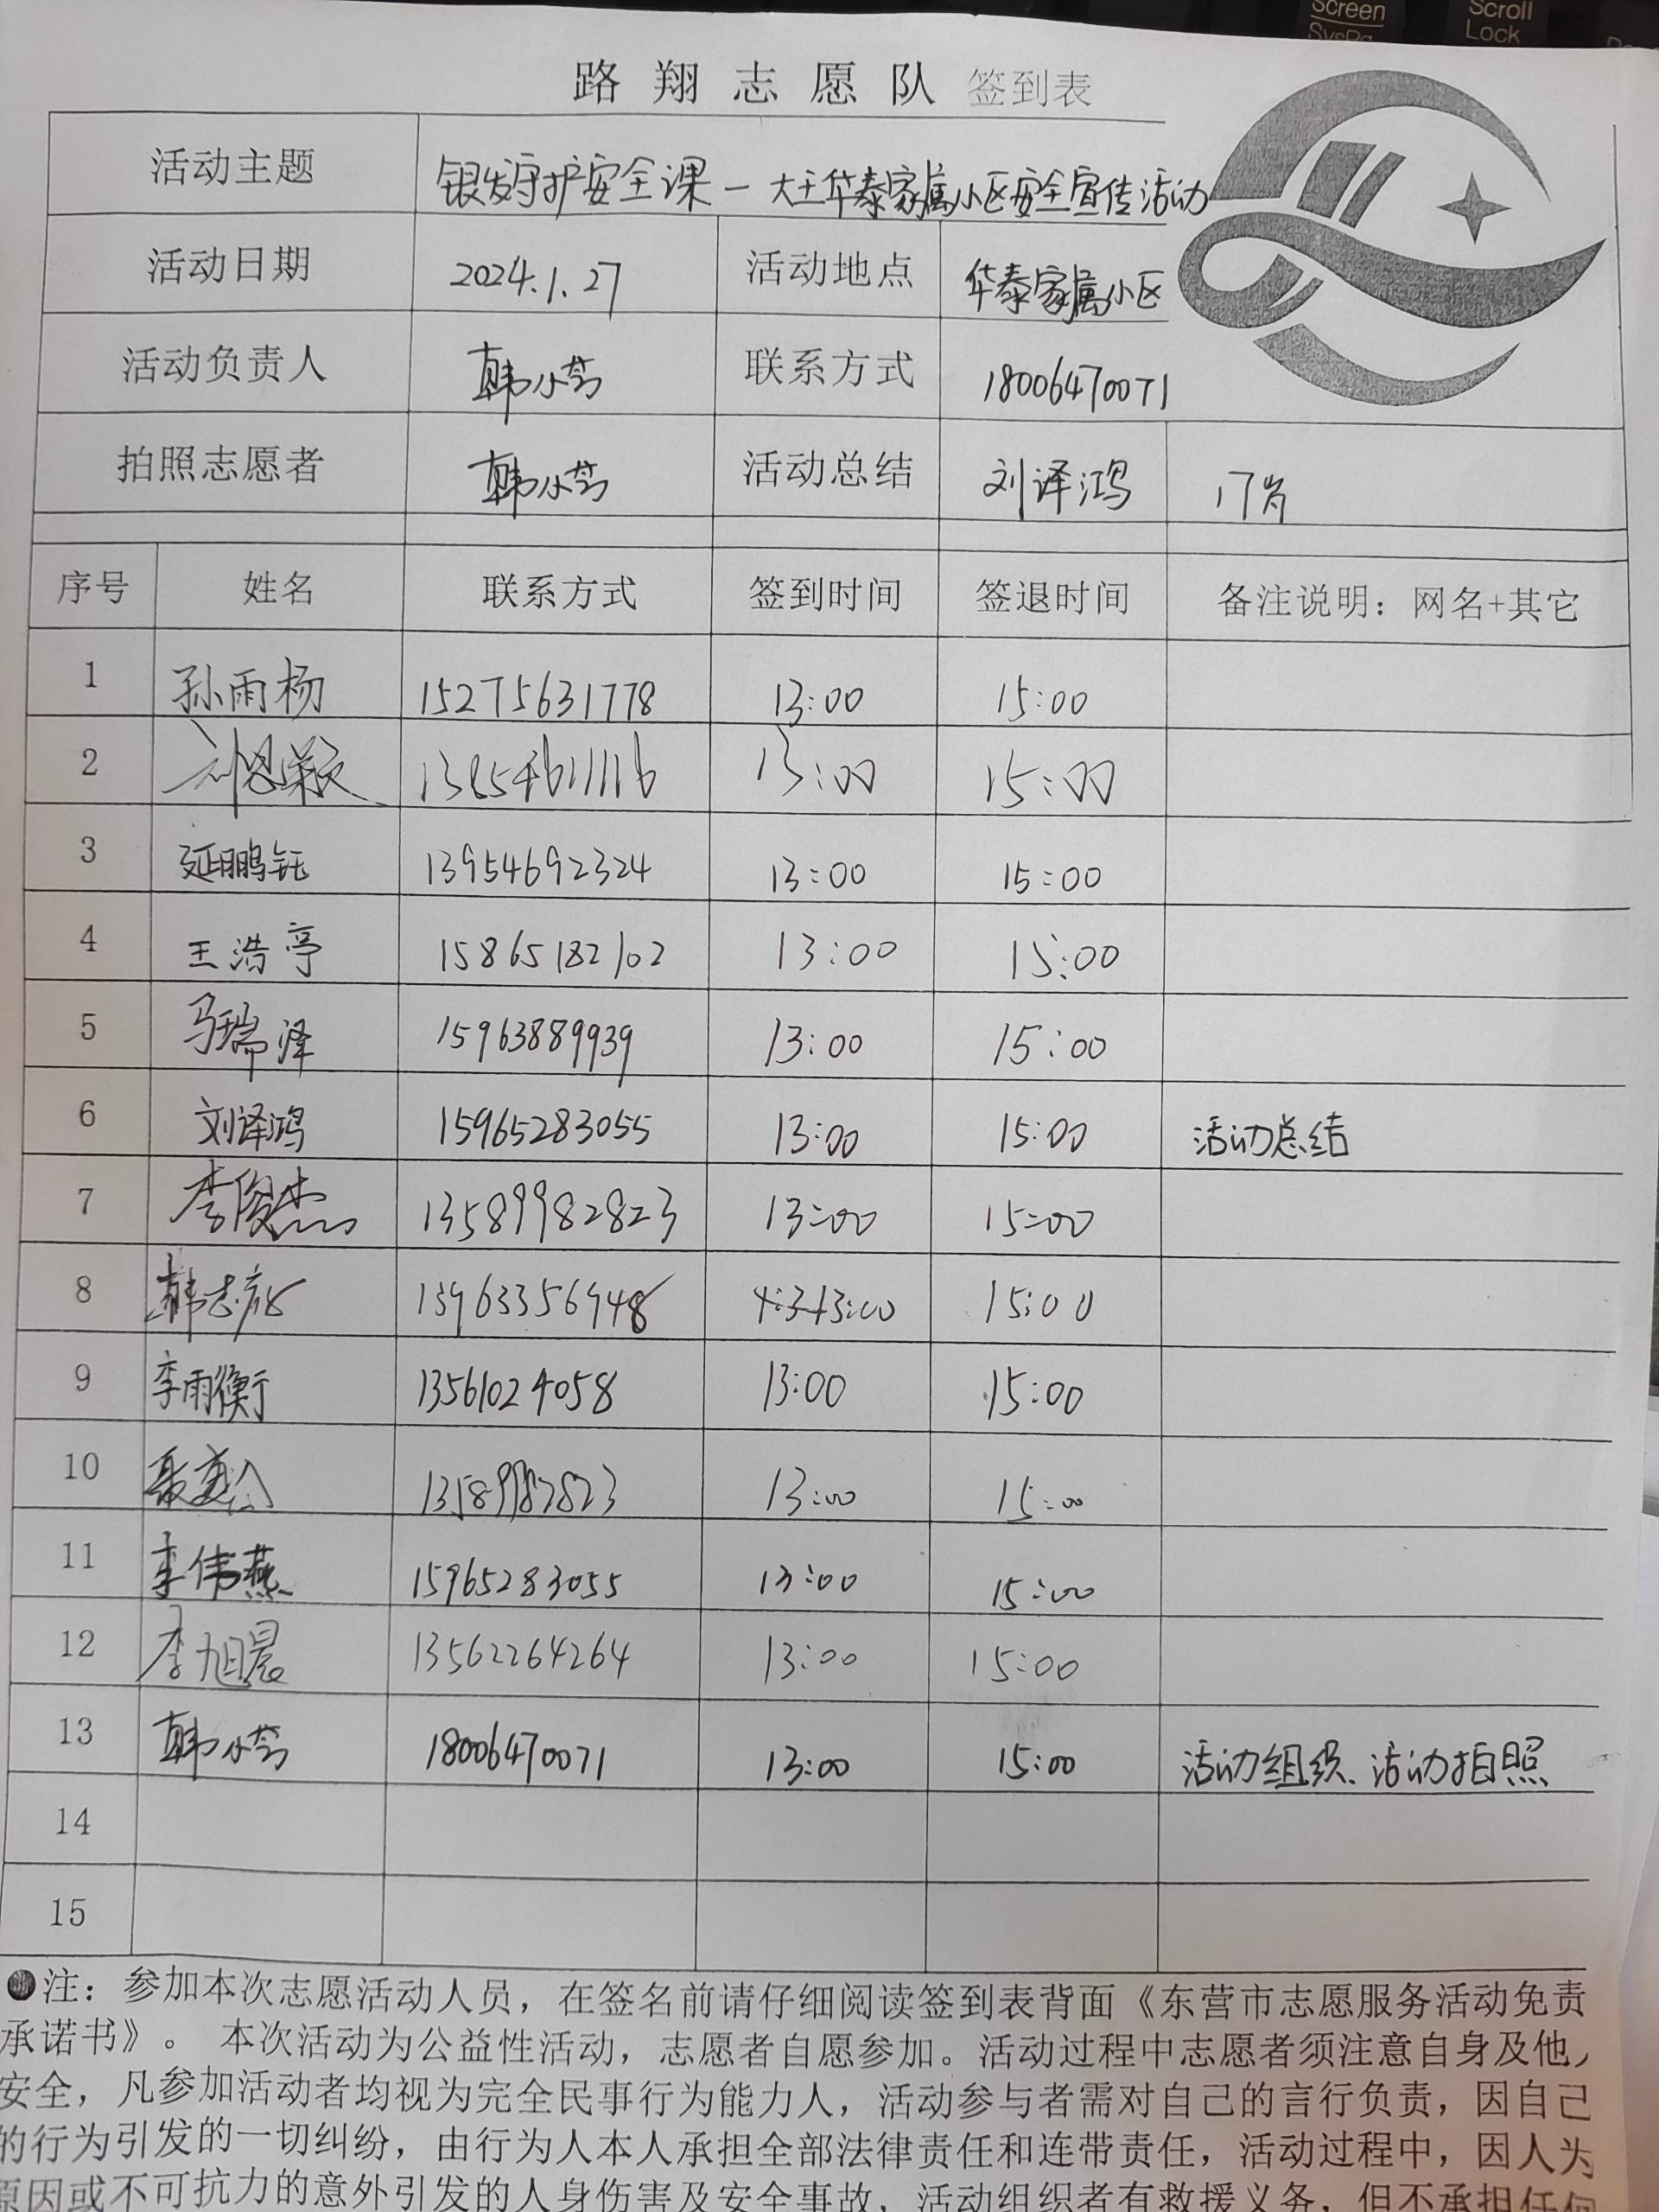 Screen
SysRq
Scroll
Lock
路翔志愿队 签到表
活动主题 银发守护安全课 — 大王华泰家属小区安全宣传活动
活动日期 2024.1.27 活动地点 华泰家属小区
活动负责人 韩小芳 联系方式 18006470071
拍照志愿者 韩小芳 活动总结 刘译鸿 17岁
序号 姓名 联系方式 签到时间 签退时间 备注说明：网名+其它
1 孙雨杨 15275631778 13:00 15:00
2 刘恩颖 13854611116 13:00 15:00
3 延鹏钰 13954692324 13:00 15:00
4 王浩亭 15865182102 13:00 15:00
5 马瑞泽 15963889939 13:00 15:00
6 刘译鸿 15965283055 13:00 15:00 活动总结
7 李俊杰 13589982823 13:00 15:00
8 韩志 13963356948 13:00 15:00
9 李雨衡 13561024058 13:00 15:00
10 13589982823 13:00 15:00
11 李伟燕 15965283055 13:00 15:00
12 李旭晨 13562264264 13:00 15:00
13 韩小芳 18006470071 13:00 15:00 活动组织、活动拍照
14
15
注：参加本次志愿活动人员，在签名前请仔细阅读签到表背面《东营市志愿服务活动免责
承诺书》。 本次活动为公益性活动，志愿者自愿参加。活动过程中志愿者须注意自身及他人
安全，凡参加活动者均视为完全民事行为能力人，活动参与者需对自己的言行负责，因自己
的行为引发的一切纠纷，由行为人本人承担全部法律责任和连带责任，活动过程中，因人为
原因或不可抗力的意外引发的人身伤害及安全事故，活动组织者有救援义务，但不承担任何